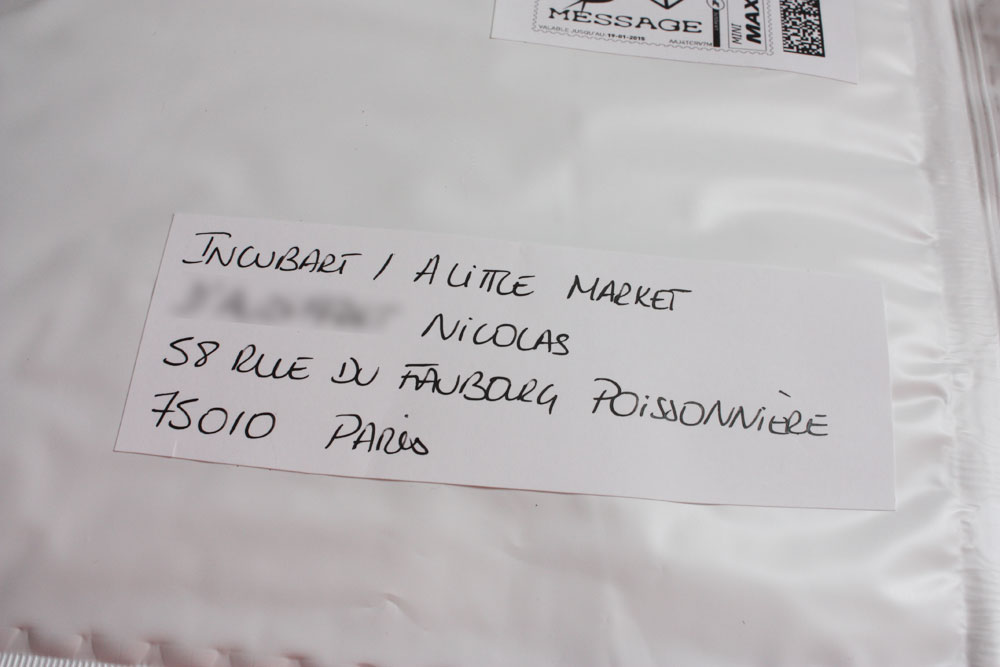 MESSAGE
VALABLE JUSQU'AU 19-01-2016
MINI MAX
INCUBART / A LITTLE MARKET
NICOLAS
58 RUE DU FAUBOURG POISSONNIÈRE
75010 PARIS